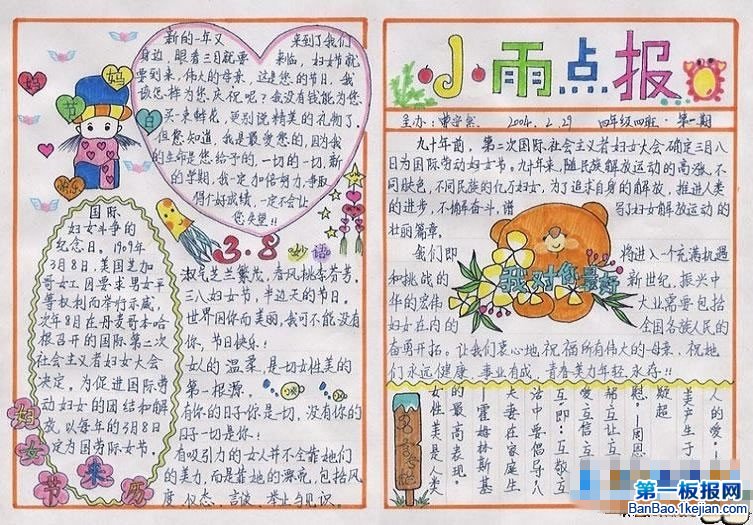 妈
妈
节
日
快乐
新的一年又 来到了我们
身边，眼看三月就要 来临，妇女节就
要到来，伟大的母亲，这是您的节日。我
该怎样为您庆祝呢？我没有钱能为您
买一束鲜花，更别说精美的礼物了。
但您知道，我是最爱您的，因为我
的生命是您给予的，一切的一切，新
的学期，我一定加倍努力，争取
得个好成绩，一定不会让
您失望！！
国际
妇女斗争的
纪念日。1909年
3月8日，美国芝加
哥女工因要求男女平
等权利而举行示威，
次年8月在丹麦哥本哈
根召开的国际第二次
社会主义者妇女大会
决定，为促进国际劳
动妇女的团结和解
放，以每年的3月8日
定为国劳际女节。
妇女节来历
3.8妙语
淑气芝兰繁茂，春风桃李芬芳。
三八妇女节，半边天的节日。
世界因你而美丽，我可不能没有
你，节日快乐！
女人的温柔，是一切女性美的
第一根源。
有你的日子你是一切，没有你的
日子一切是你！
有吸引力的女人并不全靠她们
的美力，而是靠她的漂亮，包括风
度、仪态、言谈、举止与见识。
小雨点报
主办：曹 2004.2.29 四年级四班 第一期
九十年前，第二次国际社会主义者妇女大会确定三月八
日为国际劳动妇女节。九十年来，随民族解放运动的高涨，不
同肤色，不同民族的亿万妇女，为了追求自身的解放，推进人类
的进步，不懈奋斗，谱 写了妇女解放运动的
壮丽篇章。
我们即 将进入一个充满机遇
和挑战的 新世纪，振兴中
华的宏伟 大业需要包括
妇女在内的 全国各族人民的
奋勇开拓。让我们衷心地祝福所有伟大的母亲，祝她
们永远健康，事业有成，青春美力年轻，永存！！
我对你最好
人的爱。
美产生于
疑超
慰。——周恩
帮立让、互
爱立信、互
互即：互敬、互
活中要倡导八
夫妻在家庭生
——霍姆林斯基
的最高表现。
女性美是人类
名言
第一板报网
BanBao.1kejian.com